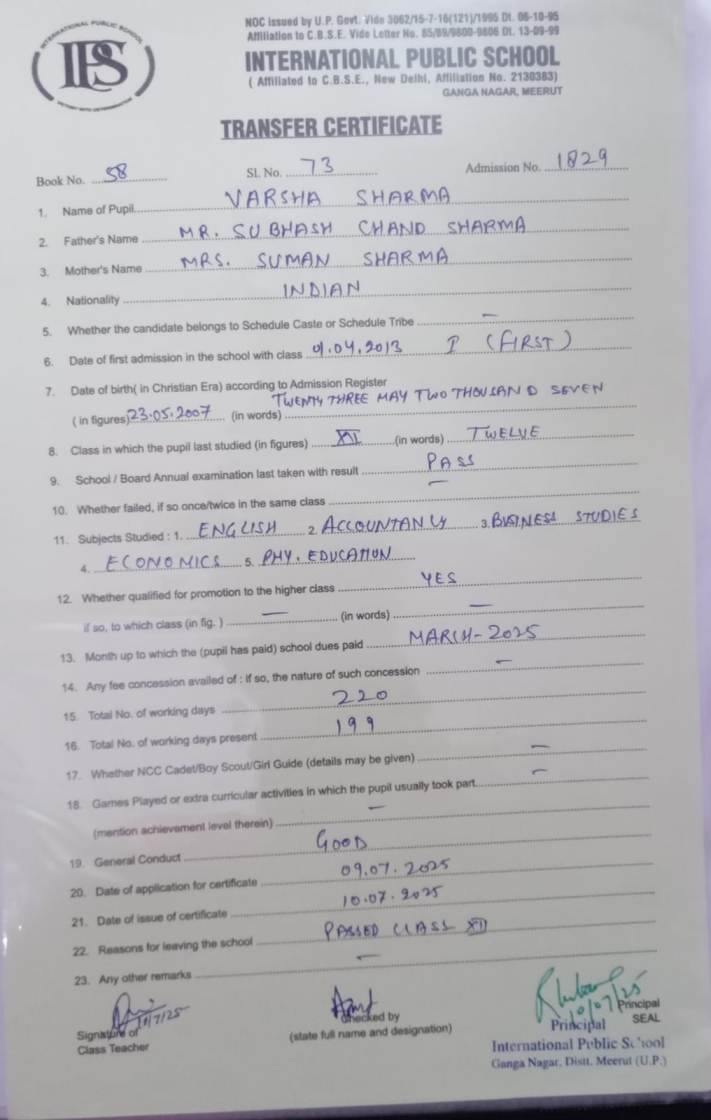 INTERNATIONAL PUBLIC SCHOOL
IPS
NOC Issued by U.P. Govt. Vide 3062/15-7-16(121)/1995 Dt. 06-10-95
Affiliation to C.B.S.E. Vide Letter No. 85/89/9800-9806 Dt. 13-09-99
INTERNATIONAL PUBLIC SCHOOL
( Affiliated to C.B.S.E., New Delhi, Affiliation No. 2130383)
GANGA NAGAR, MEERUT
TRANSFER CERTIFICATE
Book No. 58 Sl. No. 73 Admission No. 1829
1. Name of Pupil VARSHA SHARMA
2. Father's Name MR. SUBHASH CHAND SHARMA
3. Mother's Name MRS. SUMAN SHARMA
4. Nationality INDIAN
5. Whether the candidate belongs to Schedule Caste or Schedule Tribe —
6. Date of first admission in the school with class 01.04.2013 I (FIRST)
7. Date of birth( in Christian Era) according to Admission Register
( in figures) 23.05.2007 (in words) TWENTY THREE MAY TWO THOUSAND SEVEN
8. Class in which the pupil last studied (in figures) XII (in words) TWELVE
9. School / Board Annual examination last taken with result PASS
10. Whether failed, if so once/twice in the same class —
11. Subjects Studied : 1. ENGLISH 2. ACCOUNTANCY 3. BUSINESS STUDIES
4. ECONOMICS 5. PHY. EDUCATION
12. Whether qualified for promotion to the higher class YES
if so, to which class (in fig. ) — (in words) —
13. Month up to which the (pupil has paid) school dues paid MARCH-2025
14. Any fee concession availed of : if so, the nature of such concession —
15. Total No. of working days 220
16. Total No. of working days present 199
17. Whether NCC Cadet/Boy Scout/Girl Guide (details may be given) —
18. Games Played or extra curricular activities in which the pupil usually took part —
(mention achievement level therein) —
19. General Conduct GOOD
20. Date of application for certificate 09.07.2025
21. Date of issue of certificate 10.07.2025
22. Reasons for leaving the school PASSED CLASS XII
23. Any other remarks —
Signature of
Class Teacher
Checked by
(state full name and designation)
10/07/25
Principal
SEAL
Principal
International Public School
Ganga Nagar, Distt. Meerut (U.P.)